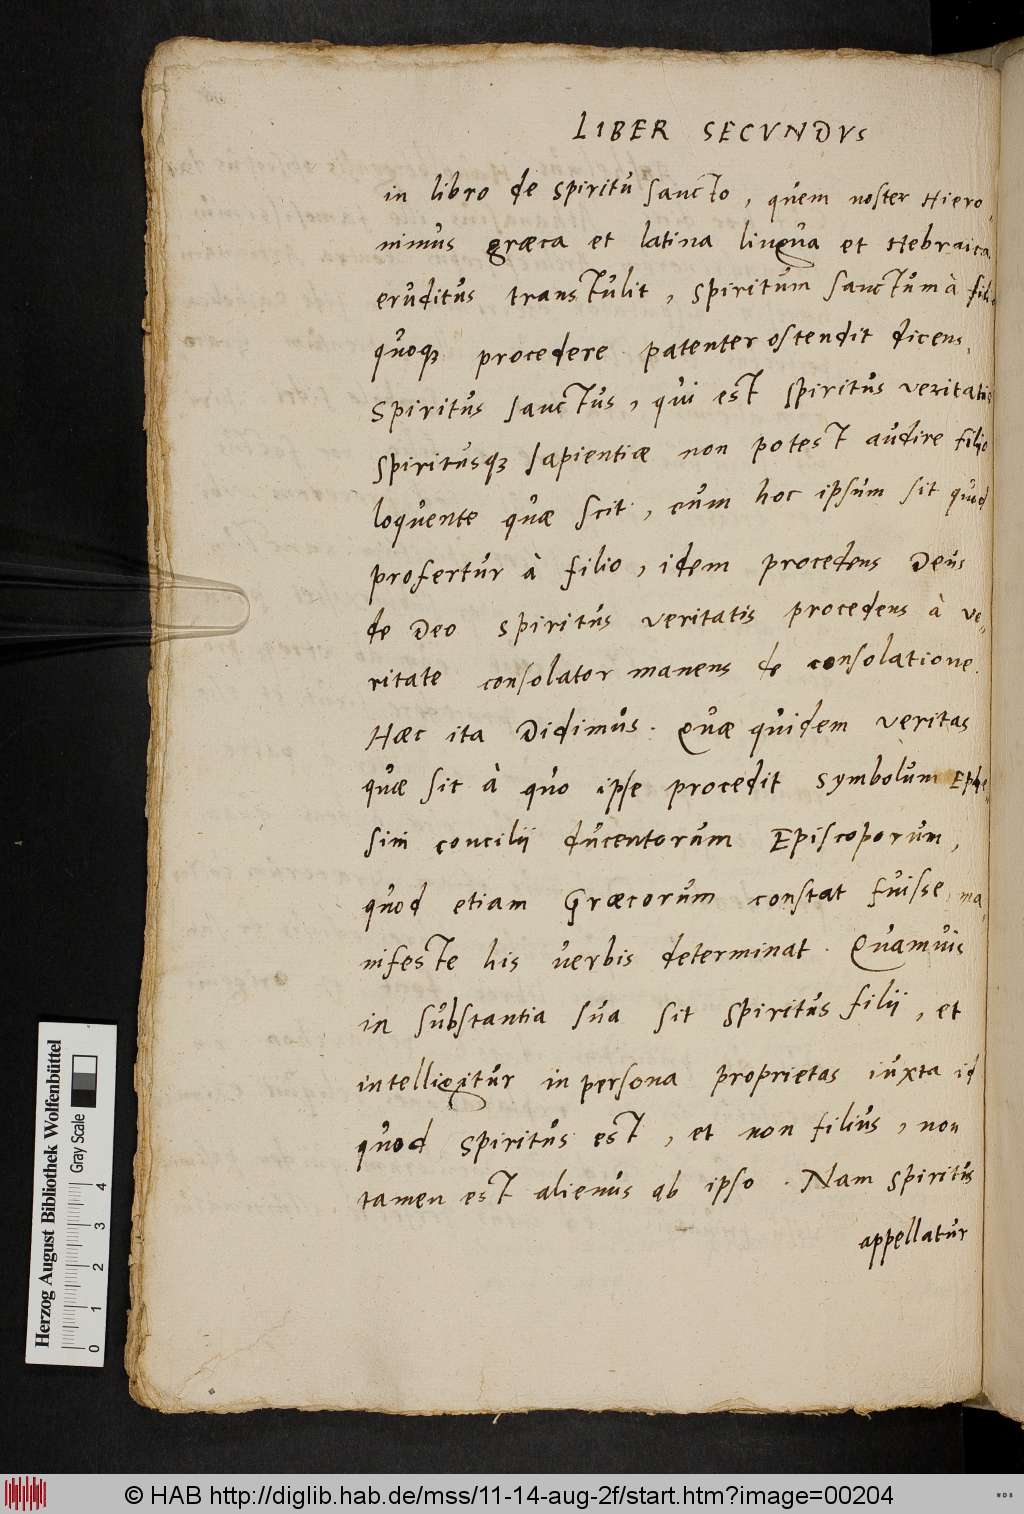 LIBER SECVNDVS
in libro de spiritu sancto, quem noster Hiero-
nimus græca et latina lingua et Hebraica
eruditus transtulit, spiritum sanctum à filio
quoqꝫ procedere patenter ostendit dicens.
Spiritus sanctus, qui est spiritus veritatis
spiritusqꝫ sapientiæ non potest audire filio
loquente quæ scit, cum hoc ipsum sit quod
profertur à filio, idem procedens Deus
de Deo spiritus veritatis procedens à ve-
ritate consolator manens de consolatione.
Hæc ita Didimus. Quæ quidem veritas
quæ sit à quo ipse procedit symbolum Ephe-
sini concilii ducentorum Episcoporum,
quod etiam Græcorum constat fuisse ma-
nifeste his verbis determinat. Quamvis
in substantia sua sit spiritus filii, et
intelligitur in persona proprietas iuxta id
quod spiritus est, et non filius, non
tamen est alienus ab ipso. Nam spiritus
appellatur
Herzog August Bibliothek Wolfenbüttel
Gray Scale
0 1 2 3 4
© HAB http://diglib.hab.de/mss/11-14-aug-2f/start.htm?image=00204